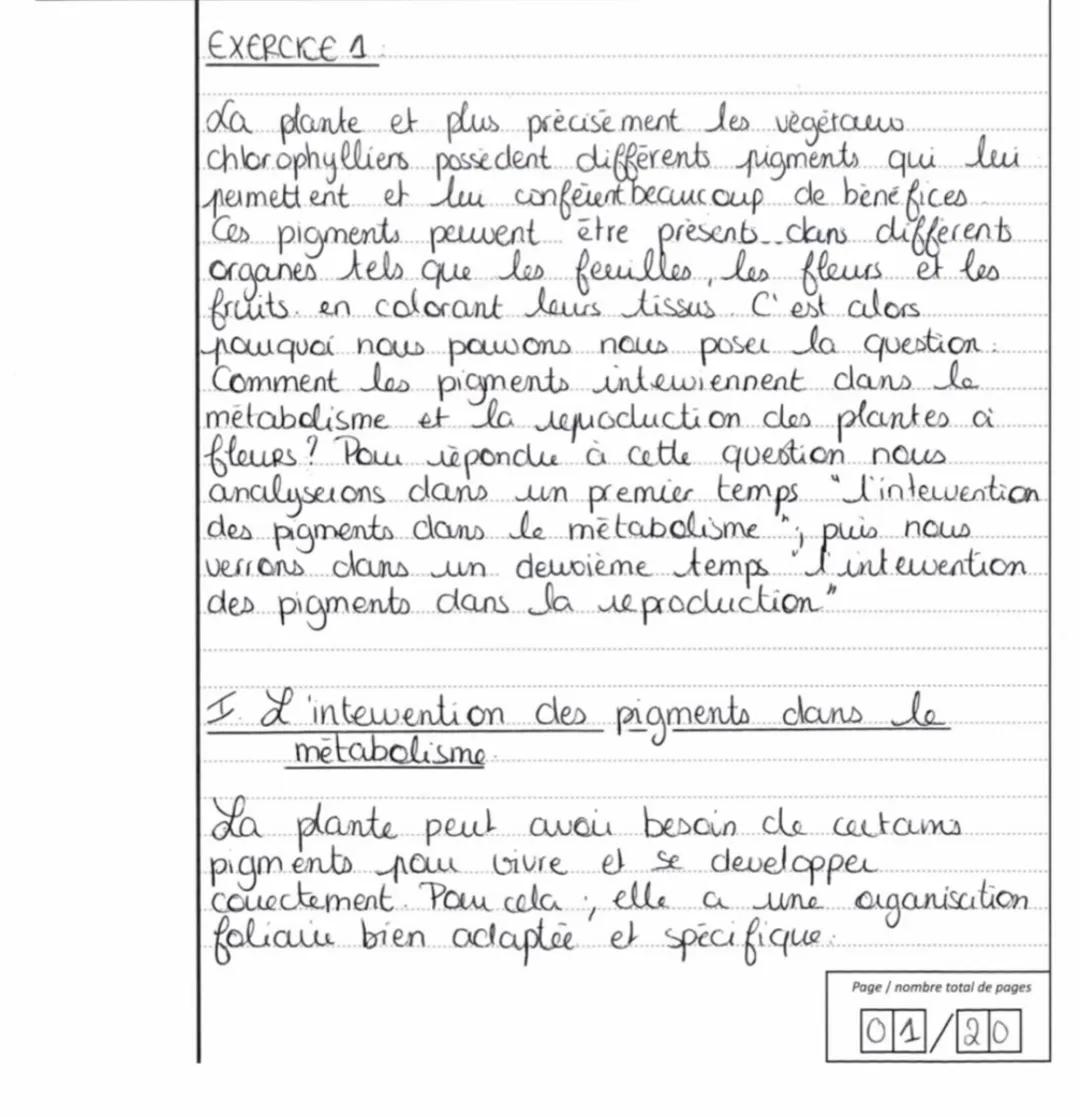 EXERCICE 1 :
La plante et plus précisément les végétaux
chlorophylliers possèdent différents pigments qui lui
permettent et lui confèrent beaucoup de bénéfices.
Ces pigments peuvent être présents dans différents
organes tels que les feuilles, les fleurs et les
fruits en colorant leurs tissus. C'est alors
pourquoi nous pouvons nous poser la question :
Comment les pigments interviennent dans le
métabolisme et la reproduction des plantes à
fleurs ? Pour répondre à cette question nous
analyserons dans un premier temps "l'intervention
des pigments dans le métabolisme"; puis nous
verrons dans un deuxième temps "l'intervention
des pigments dans la reproduction"
I. L'intervention des pigments dans le
métabolisme.
La plante peut avoir besoin de certains
pigments pour vivre et se developper
correctement. Pour cela ; elle a une organisation
foliaire bien adaptée et spécifique.
Page / nombre total de pages
01/20